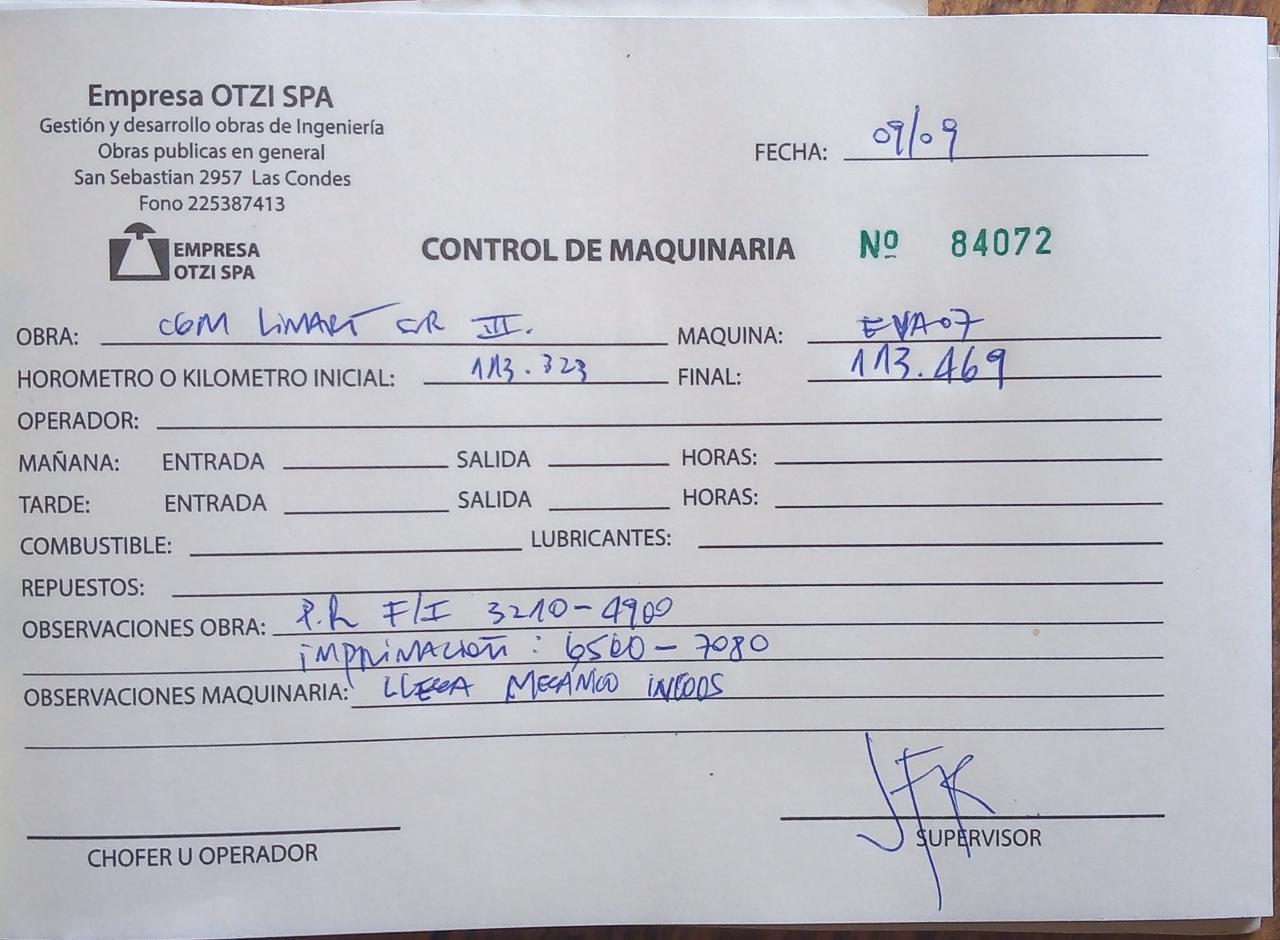 Empresa OTZI SPA
Gestión y desarrollo obras de Ingeniería
Obras publicas en general
San Sebastian 2957 Las Condes
Fono 225387413
FECHA: 09/09
EMPRESA
OTZI SPA
CONTROL DE MAQUINARIA Nº 84072
OBRA: CGM LIMARÍ CR III. MAQUINA: EVA07
HOROMETRO O KILOMETRO INICIAL: 113.323 FINAL: 113.469
OPERADOR:
MAÑANA: ENTRADA SALIDA HORAS:
TARDE: ENTRADA SALIDA HORAS:
COMBUSTIBLE: LUBRICANTES:
REPUESTOS:
OBSERVACIONES OBRA: F/I 3210-4900
IMPRIMACION: 6500-7080
OBSERVACIONES MAQUINARIA: LLEGA MECÁNICO
CHOFER U OPERADOR
SUPERVISOR